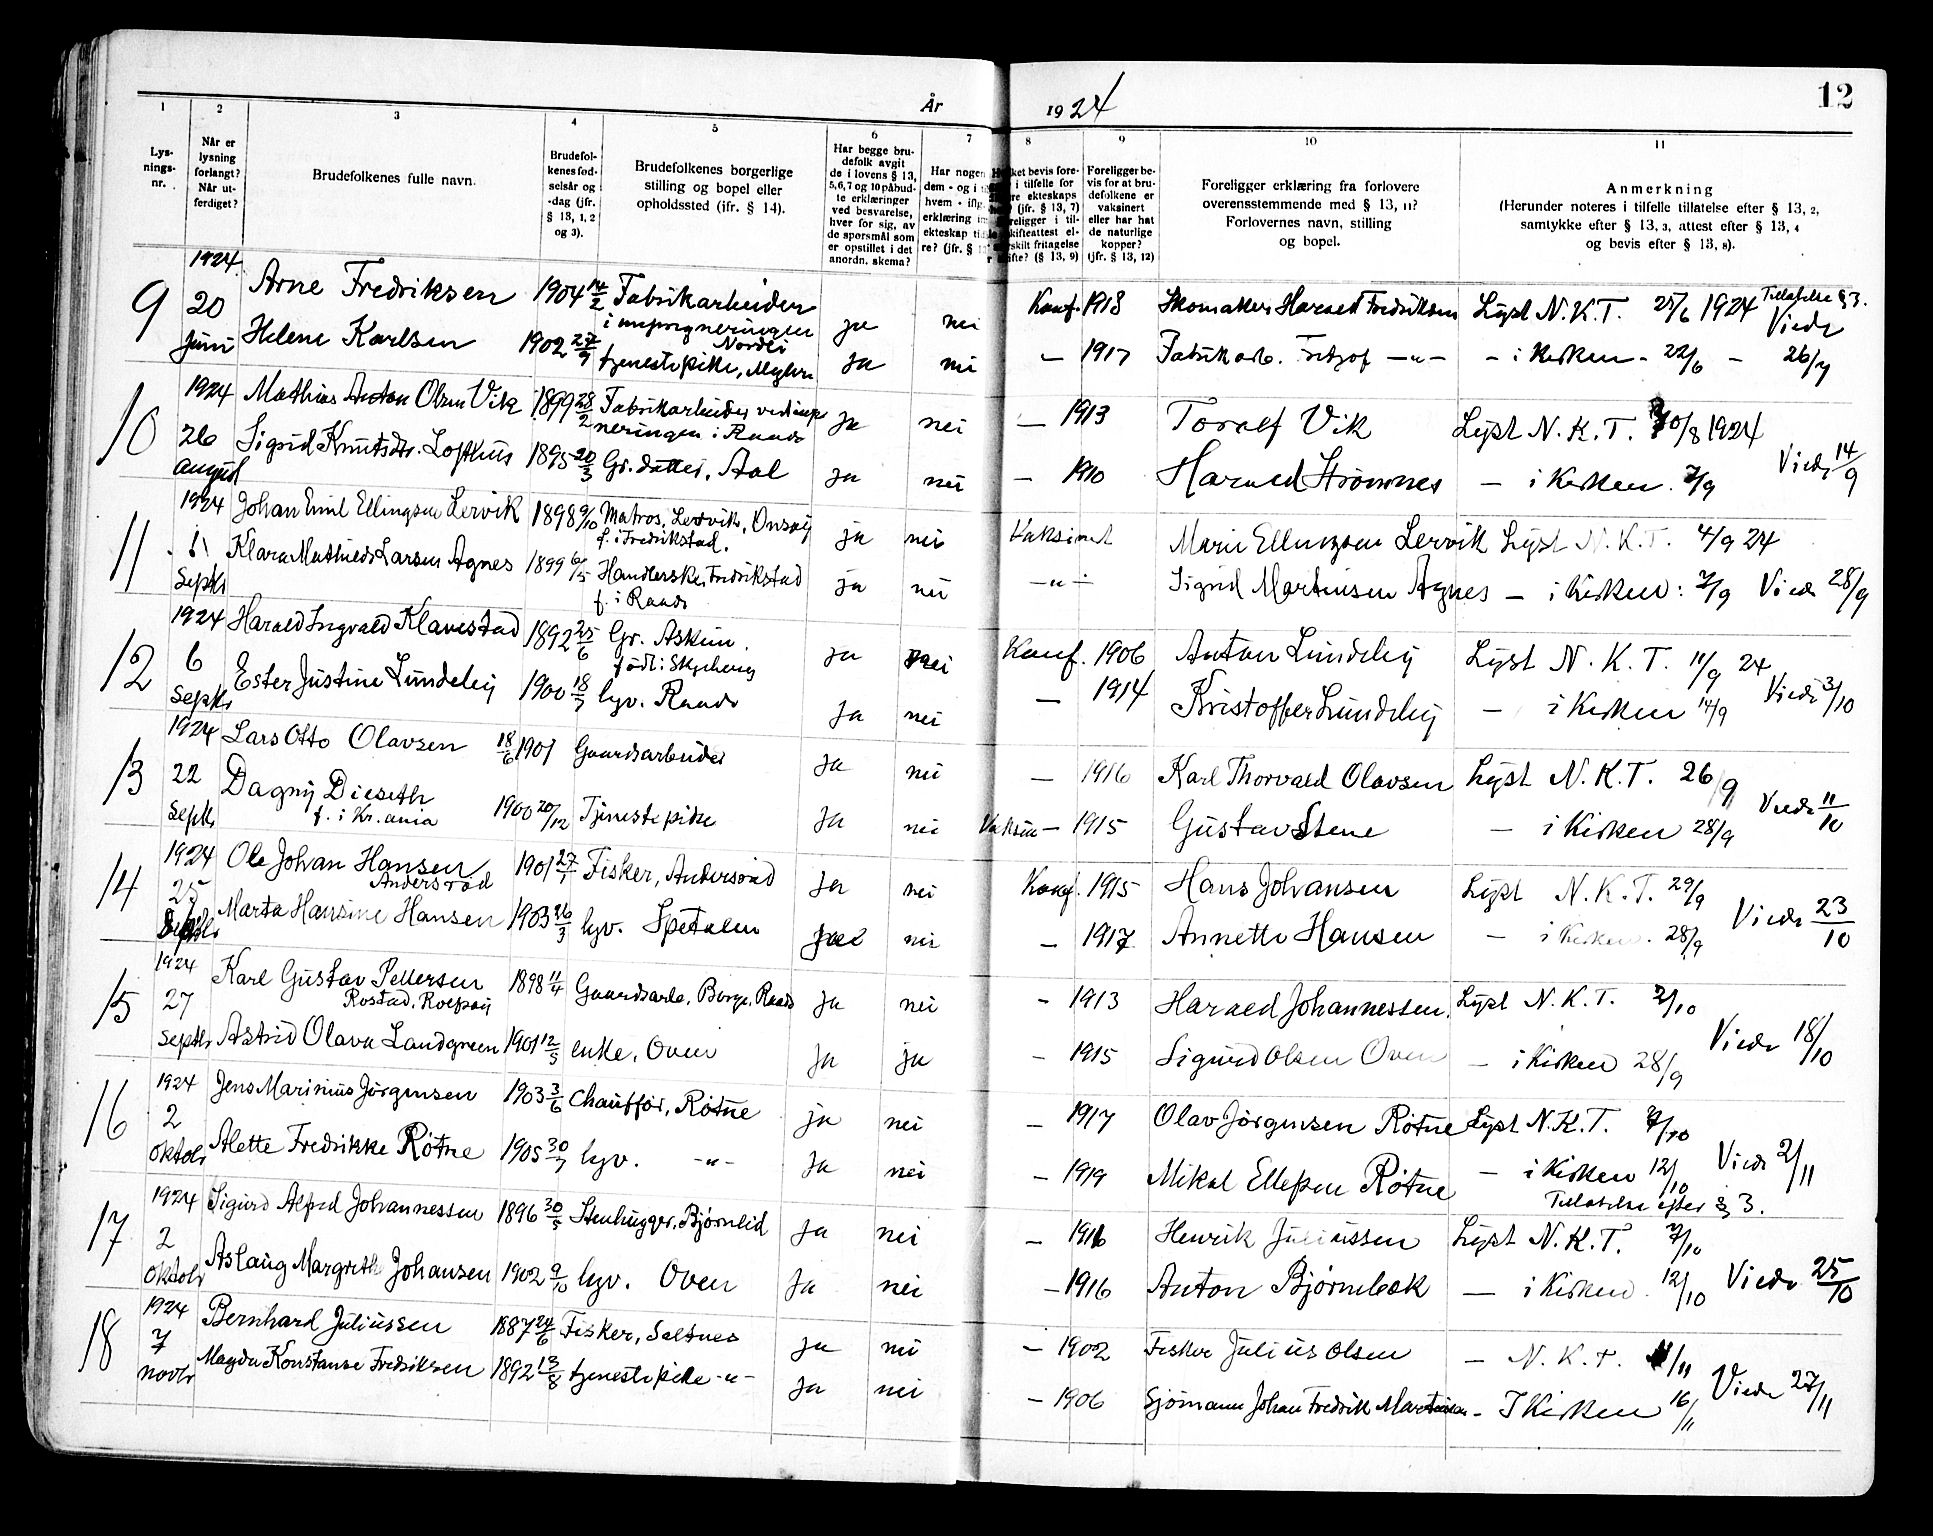 År 1924
12
1 2 3 4 5 6 7 8 9 10 11
Lys-
nings-
nr.
Når er
lysning
forlangt?
Når ut-
ferdiget?
Brudefolkenes fulle navn.
Brudefol-
kenes fød-
selsår og
-dag (jfr.
§ 13, 1, 2
og 3).
Brudefolkenes borgerlige
stilling og bopel eller
opholdssted (ifr. § 14).
Har begge bru-
defolk avgit
de i lovens § 13,
5,6,7 og 10 påbud-
te erklæringer
ved besvarelse,
hver for sig, av
de spørsmål som
er opstillet i det
anordn. skema?
Har nogen
dem - og i
hvem - ifig.
erklæring
ekteskap
re? (jfr. §
ket bevis fore-
i tilfelle for
re ekteskaps
? (jfr. § 13, 7)
religger i til-
skifteattest el-
skilt fritagelse
ifte? (§ 13, 9)
Foreligger be-
vis for at bru-
defolkene er
vaksinert
eller har hat
de naturlige
kopper?
(jfr. § 13, 12)
Foreligger erklæring fra forlovere
overensstemmende med § 13, 11?
Forlovernes navn, stilling
og bopel.
Anmerkning
(Herunder noteres i tilfelle tillatelse efter § 13, 2,
samtykke efter § 13, 3, attest efter § 13, 4
og bevis efter § 13, 8).
9 1924 20 juni
Arne Fredriksen 1904 14/2 Fabrikarbeider i imprgneringen ja nei Konf. 1918 Skomaker Harald Fredriksen Lyst N.K.T. 25/6 1924 Tillatelse § 3. Viede
Helene Karlsen 1902 27/9 tjenestepike, ja nei — 1917 Fabrikarb. Fritjof —"— – i Kirken – 22/6 – 26/7
10 1924 26 august
Mathias Anton Olsen Vik 1899 28/2 Fabrikarbeider ved impneringen i Raade ja nei — 1913 Toralf Vik Lyst N.K.T. 30/8 1924
Sigrid Knutsdtr. Lofthus 1895 20/3 Gr.datter, Aal ja nei — 1910 Harald Strømnes — i Kirken. 7/9 Viede 14/9
11 1924 1 Septbr
Johan Emil Ellingsen Lervik 1898 9/10 Matros, Lervik, Onsøy f. i Fredrikstad. ja nei Vaksinert Marie Ellingsen Lervik Lyst N.K.T. 4/9 24
Klara Mathilde Larsen Agnes 1899 6/5 Handlerske, Fredrikstad f. i Raade ja nei —"— Sigrid Martinsen Agnes — i Kirken: 7/9 Viede 28/9
12 1924 6 Septbr
Harald Ingvald Klavestad 1892 25/6 Gr. Askim. født i Skjeberg ja nei Konf. 1906 Anton Lundeby Lyst N.K.T. 11/9 24
Ester Justine Lundeby 1900 18/7 hjv. Raade ja nei — 1914 Kristoffer Lundeby — i Kirken 14/9 Viede 3/10
13 1924 22 Septbr
Lars Otto Olavsen 18/6 1901 Gaardsarbeider ja nei — 1916 Karl Thorvald Olavsen Lyst N.K.T. 26/9
Dagny Dieseth f. i Kr.ania 1900 20/12 Tjenestepike ja nei Vaksin — 1915 Gustav Stene — i Kirken 28/9 Viede 11/10
14 1924 25 Septbr
Ole Johan Hansen Andersrød 1901 27/1 Fisker, Andersrød ja nei Konf. 1915 Hans Johansen Lyst N.K.T. 29/9
Marta Hansine Hansen 1903 26/3 hjv. Spetalen nei — 1917 Annette Hansen — i Kirken. 28/9 Viede 23/10
15 1924 27 Septbr
Karl Gustav Pettersen Rostad, Rolfsøy 1898 11/4 Gaardsarb. Borge, Raade ja nei – 1913 Harald Johannessen. Lyst N.K.T. 2/10
Astrid Olava Landgreen 1901 12/5 enke, Oven ja ja – 1915 Sigurd Olsen Oven — i Kirken 28/9 Viede 18/10
16 1924 2 Oktobr
Jens Marinius Jörgensen 1903 3/6 Chauffør, Røtne ja nei — 1917 Olav Jörgensen Røtne Lyst N.K.T. 7/10
Alette Fredrikke Røtne 1905 30/7 hjv. –"– ja nei — 1919 Mikal Ellefsen Røtne — i Kirken 12/10 Viede 2/11
Tillatelse efter § 3.
17 1924 2 Oktobr
Sigurd Alfred Johannessen 1896 30/5 Stenhugger, Bjørnlid ja nei — 1911 Henrik Juliussen Lyst N.K.T. 7/10
Aslaug Margrethe Johansen 1902 9/10 hjv. Oven ja nei — 1916 Anton Bjørnbek — i Kirken. 12/10 Viede 25/10
18 1924 7 novbr
Bernhard Juliussen 1887 24/6 Fisker, Saltnes ja nei — 1902 Fisker Julius Olsen — N.K.T. /11
Magda Konstanse Fredriksen 1892 13/8 tjenestepike –"– ja nei — 1906 Sjömann Johan Fredrik Martinsen – I Kirken 16/11 Viede 27/11